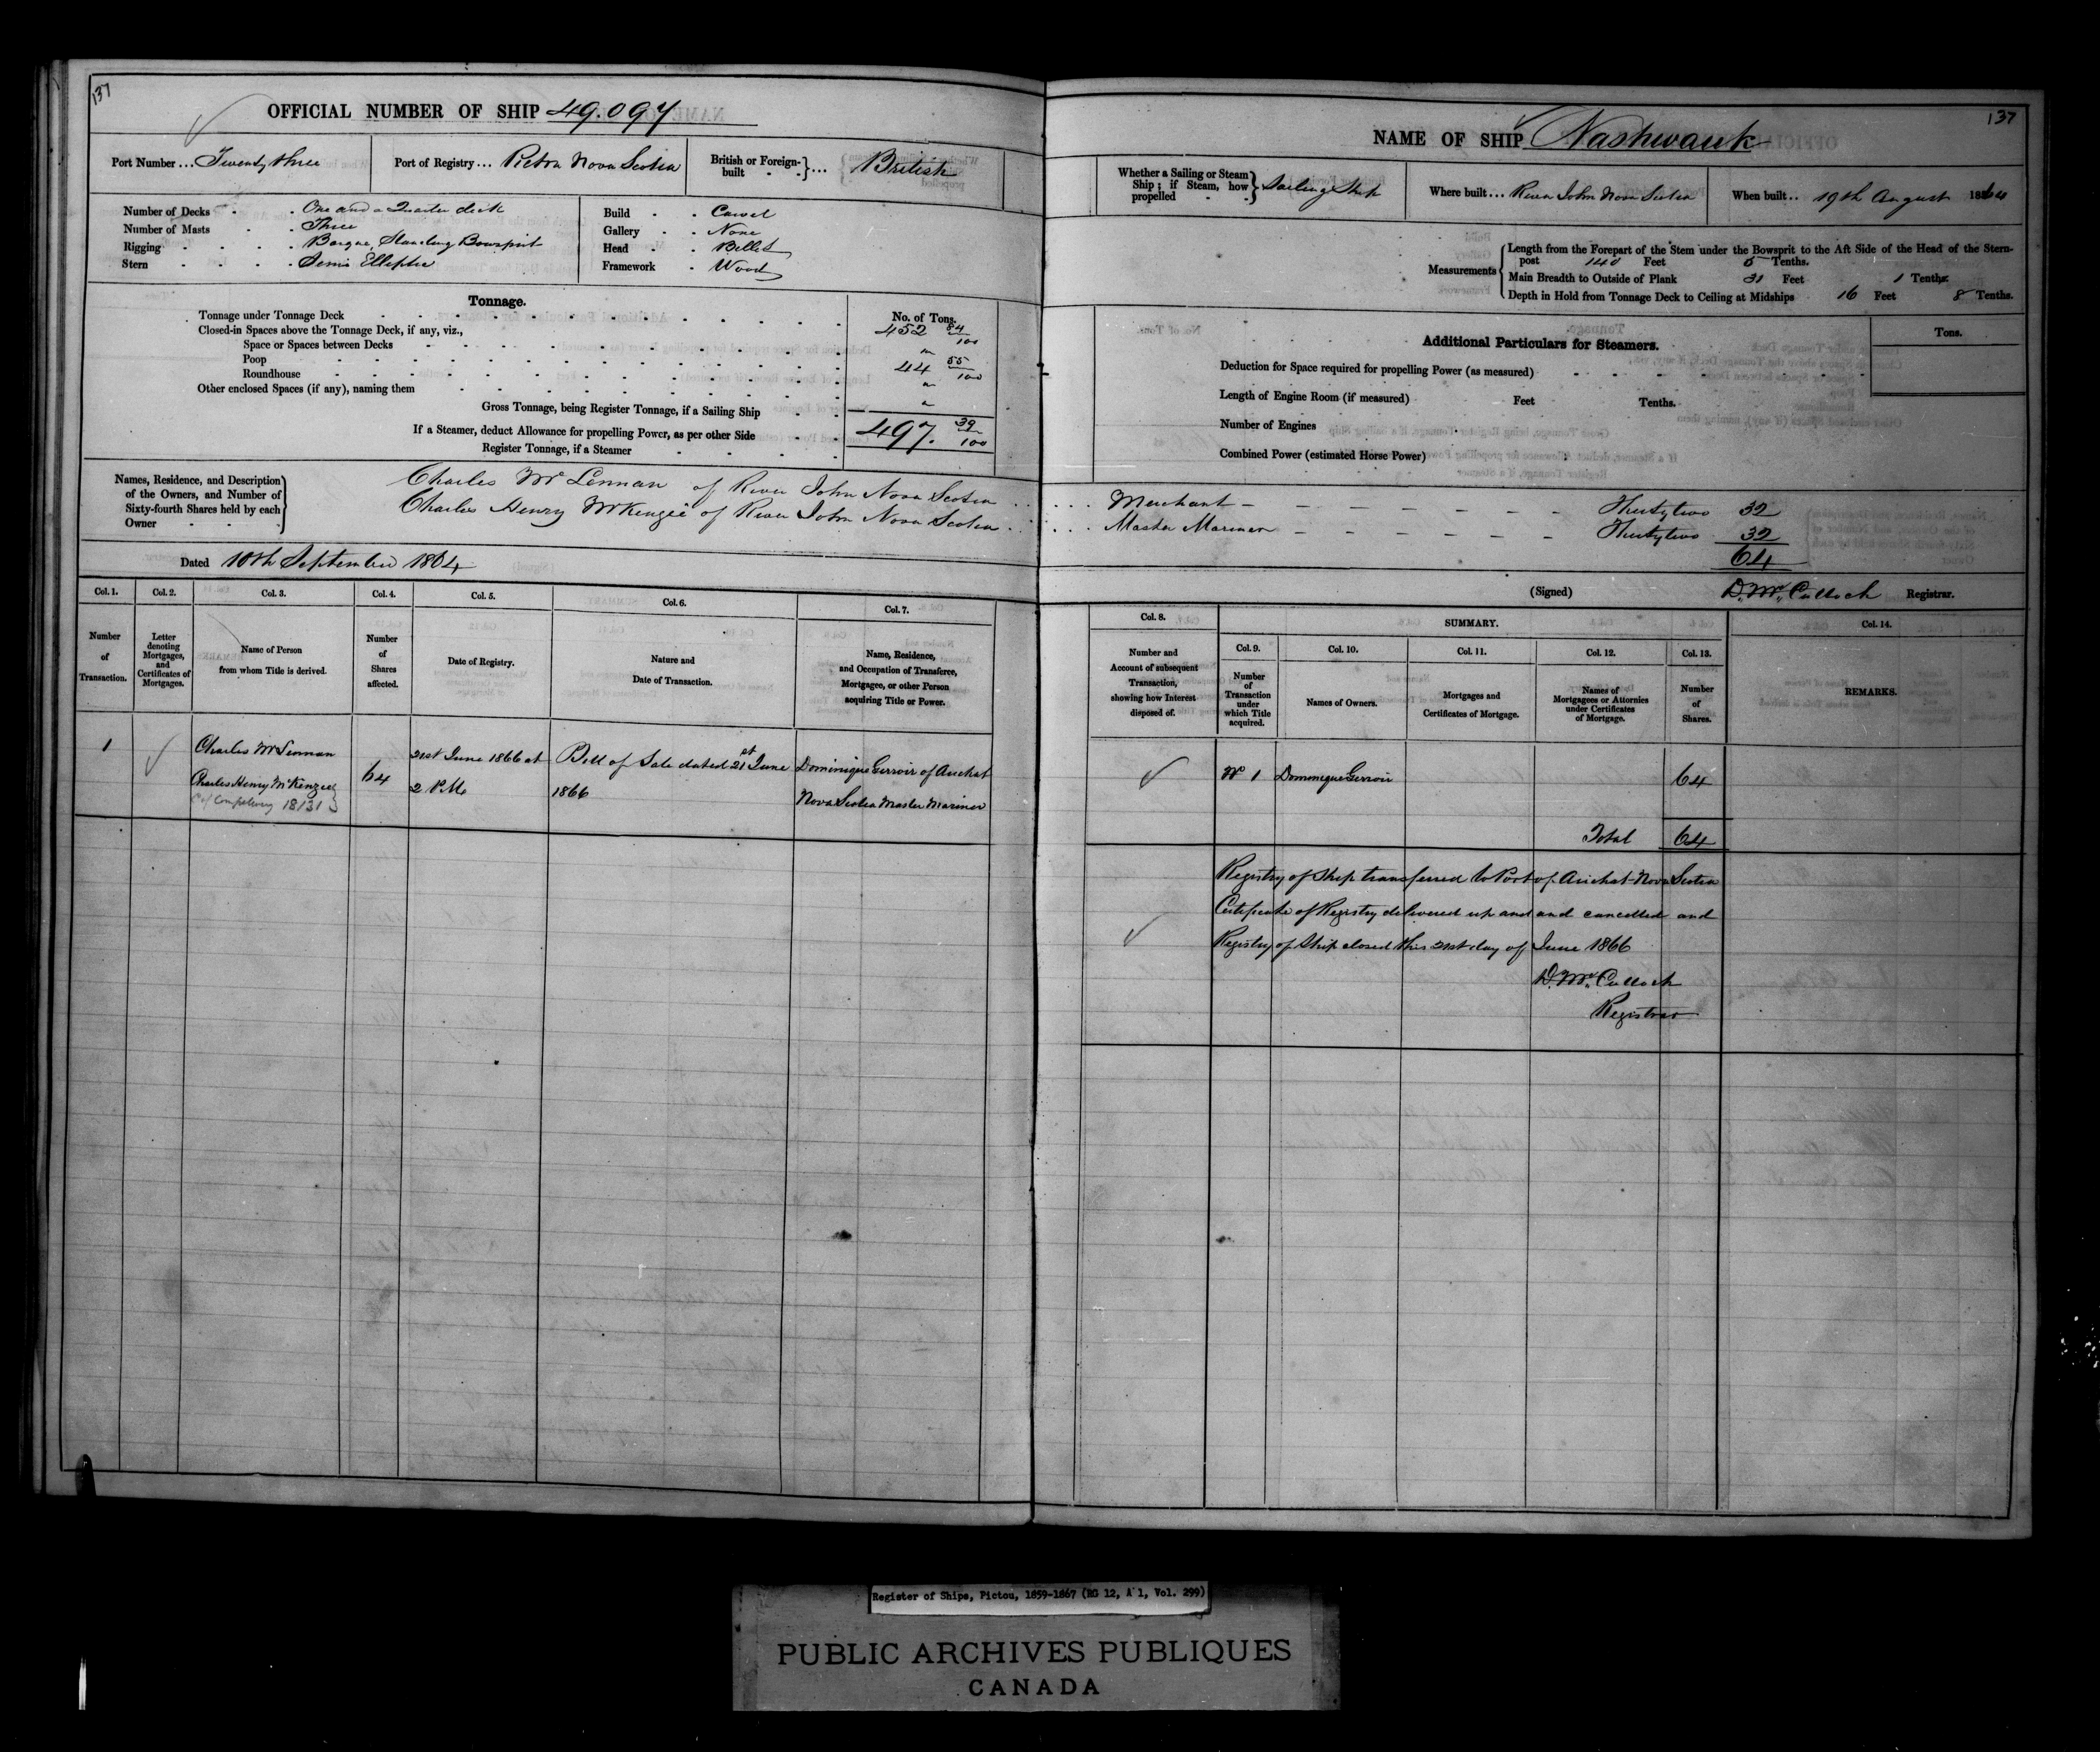 137
OFFICIAL NUMBER OF SHIP 49.097
Port Number ... Twenty three
Port of Registry ... Pictou Nova Scotia
British or Foreign-built ... British
Number of Decks . . One and a Quarter deck
Number of Masts . . Three
Rigging . . . . Barque, Standing Bowsprit
Stern . . . . Semi Elliptic
Build . . Carvel
Gallery . . None
Head . . Billet
Framework . Wood
Tonnage.
No. of Tons.
Tonnage under Tonnage Deck 452 84/100
Closed-in Spaces above the Tonnage Deck, if any, viz.,
Space or Spaces between Decks "
Poop 44 55/100
Roundhouse "
Other enclosed Spaces (if any), naming them "
Gross Tonnage, being Register Tonnage, if a Sailing Ship
497. 39/100
If a Steamer, deduct Allowance for propelling Power, as per other Side
Register Tonnage, if a Steamer
Names, Residence, and Description of the Owners, and Number of Sixty-fourth Shares held by each Owner
Charles McLennan of River John Nova Scotia
Charles Henry McKenzie of River John Nova Scotia
Dated 10th September 1864
Col. 1. Col. 2. Col. 3. Col. 4. Col. 5. Col. 6. Col. 7.
Number of Transaction.
Letter denoting Mortgages, and Certificates of Mortgages.
Name of Person from whom Title is derived.
Number of Shares affected.
Date of Registry.
Nature and Date of Transaction.
Name, Residence, and Occupation of Transferee, Mortgagee, or other Person acquiring Title or Power.
1
Charles McLennan
Charles Henry McKenzie
18131
64
21st June 1866 at
2 P.M.
Bill of Sale dated 21st June
1866
Dominique Gerroir of Arichat
Nova Scotia Master Mariner
137
NAME OF SHIP Nashwauk
Whether a Sailing or Steam Ship; if Steam, how propelled Sailing Ship
Where built ... River John Nova Scotia
When built .. 19th August 1864
Measurements
Length from the Forepart of the Stem under the Bowsprit to the Aft Side of the Head of the Stern-
post 140 Feet 5 Tenths.
Main Breadth to Outside of Plank 31 Feet 1 Tenths.
Depth in Hold from Tonnage Deck to Ceiling at Midships 16 Feet 8 Tenths.
Additional Particulars for Steamers.
Tons.
Deduction for Space required for propelling Power (as measured)
Length of Engine Room (if measured) Feet Tenths.
Number of Engines
Combined Power (estimated Horse Power)
Merchant - - - - - - - Thirtytwo 32
Master Mariner - - - - - - Thirtytwo 32
64
(Signed) D. McCulloch Registrar.
Col. 8. SUMMARY. Col. 14.
Col. 9. Col. 10. Col. 11. Col. 12. Col. 13.
Number and Account of subsequent Transaction, showing how Interest disposed of.
Number of Transaction under which Title acquired.
Names of Owners.
Mortgages and Certificates of Mortgage.
Names of Mortgagees or Attornies under Certificates of Mortgage.
Number of Shares.
REMARKS.
No 1 Dominique Gerroir 64
Total 64
Registry of Ship transferred to Port of Arichat Nova Scotia
Certificate of Registry delivered up and and cancelled and
Registry of Ship closed this 21st day of June 1866
D. McCulloch
Registrar
Register of Ships, Pictou, 1859-1867 (RG 12, A 1, Vol. 299)
PUBLIC ARCHIVES PUBLIQUES
CANADA